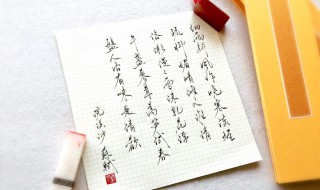 细雨斜风作晓寒淡烟
疏柳媚晴滩入淮清
洛渐漫漫雪沫乳花浮
午盏蓼茸蒿笋试春
盘人间有味是清欢
浣溪沙 苏轼